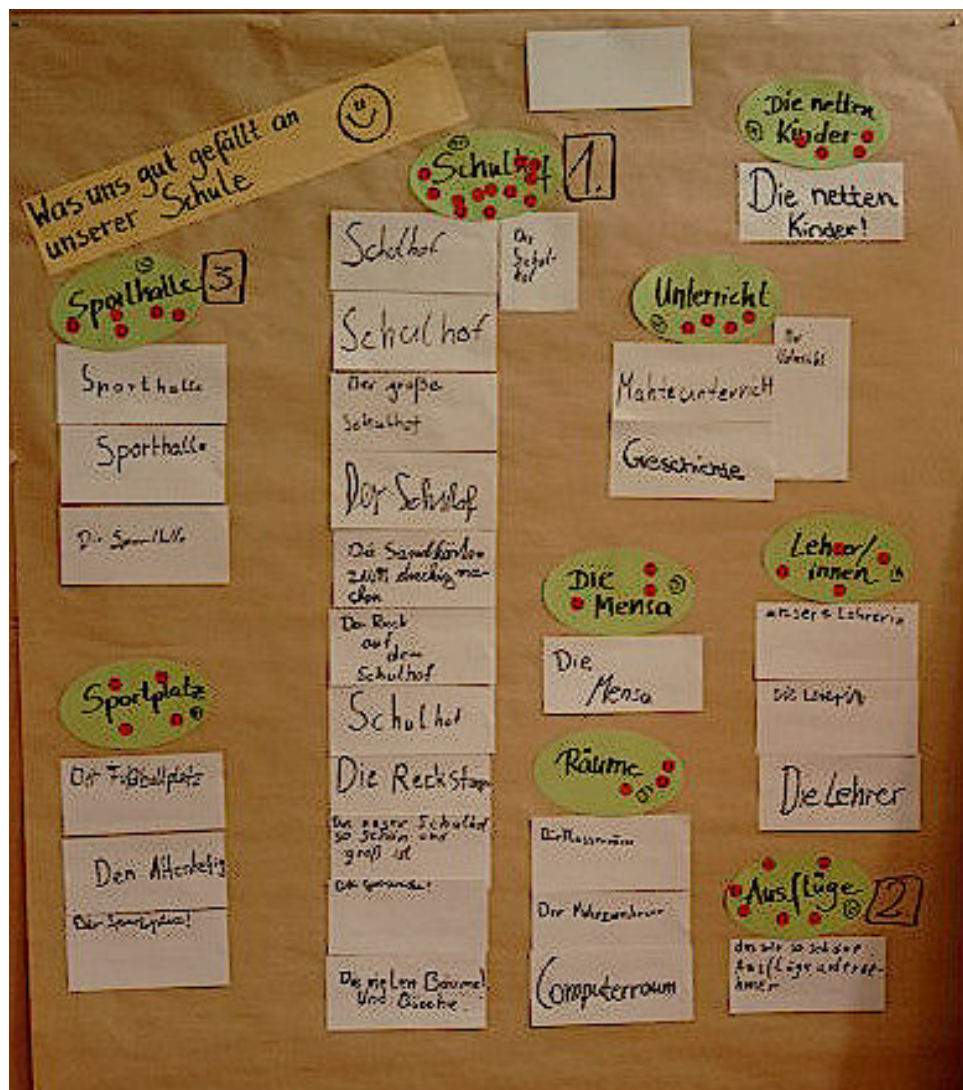 Was uns gut gefällt an
unserer Schule
Sporthalle
3.
Sporthalle
Sporthalle
Die Sporthalle
Sportplatz
Der Fußballplatz
Den
Der Sportplatz!
Schulhof
1.
Schulhof
Der
Schul-
hof
Schulhof
Der große
Schulhof
Der Schulof
Die
dreckig ma-
chen
Das Reck
auf
dem
Schulhof
Schulhof
Die Reckstange
Das unser Schulhof
so schön und
groß ist
Die vielen Bäume!
Und Büsche!
Die netten
Kinder
Die netten
Kinder!
Unterricht
Der
Unterricht
Mahteunterricht
Geschichte
Die
Mensa
Die
Mensa
Räume
Der
Computerraum
Lehrer/
innen
unsere Lehrerin
Die
Die Lehrer
Ausflüge
2.
das wir so schöne
Ausflüge